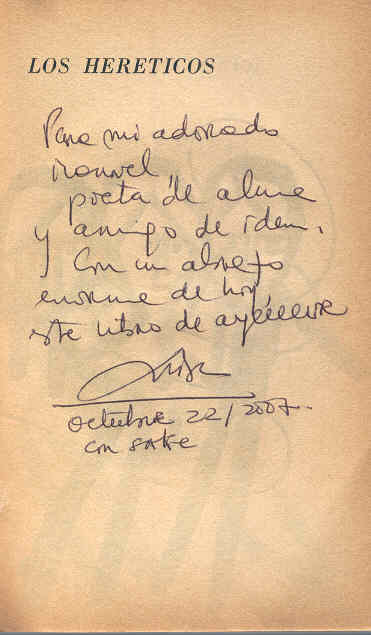 LOS HERETICOS
Para mi adorado
poeta de alma
y amigo de idem.
Con un abrazo
enorme de hoy,
este libro de
octubre 22/2007.
con